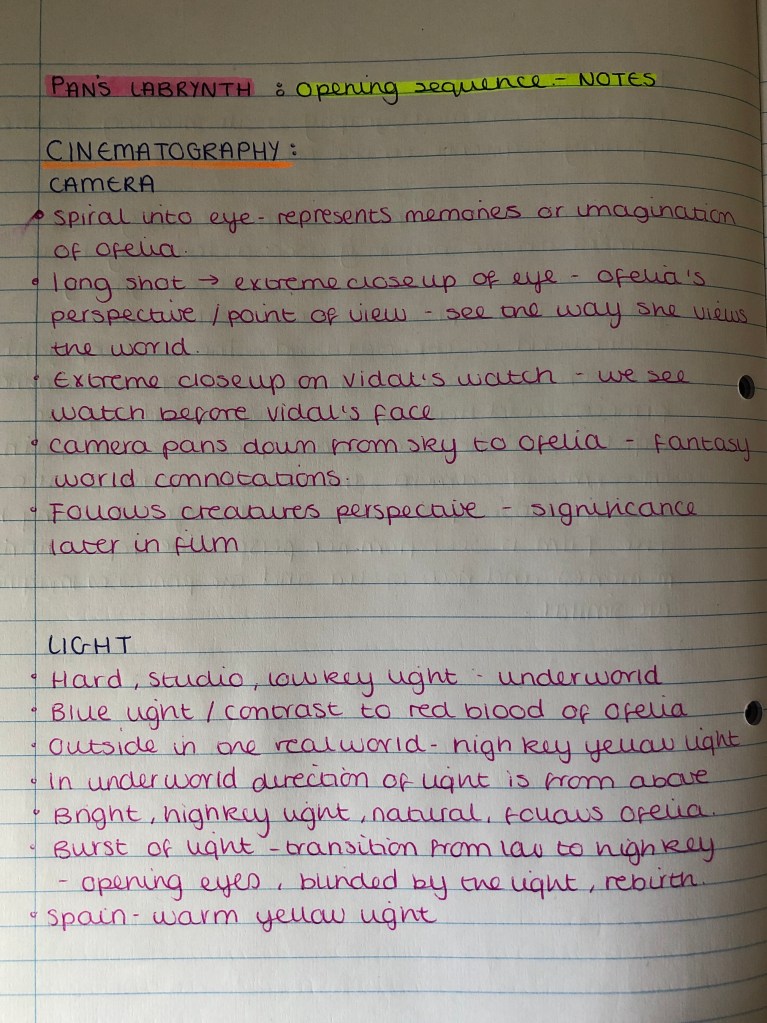 PAN'S LABRYNTH : Opening sequence - NOTES
CINEMATOGRAPHY:
CAMERA
• Spiral into eye - represents memories or imagination
of Ofelia.
• long shot → extreme closeup of eye - Ofelia's
perspective / point of view - see the way she views
the world.
• Extreme closeup on Vidal's watch - we see
watch before Vidal's face
• Camera pans down from sky to Ofelia - fantasy
world connotations.
• Follows creatures perspective - significance
later in film
LIGHT
• Hard, studio, low key light - underworld
• Blue light / contrast to red blood of Ofelia
• Outside in the real world - high key yellow light
• In underworld direction of light is from above
• Bright, highkey light, natural, follows Ofelia.
• Burst of light - transition from low to high key
- opening eyes, blinded by the light, rebirth.
• Spain - warm yellow light